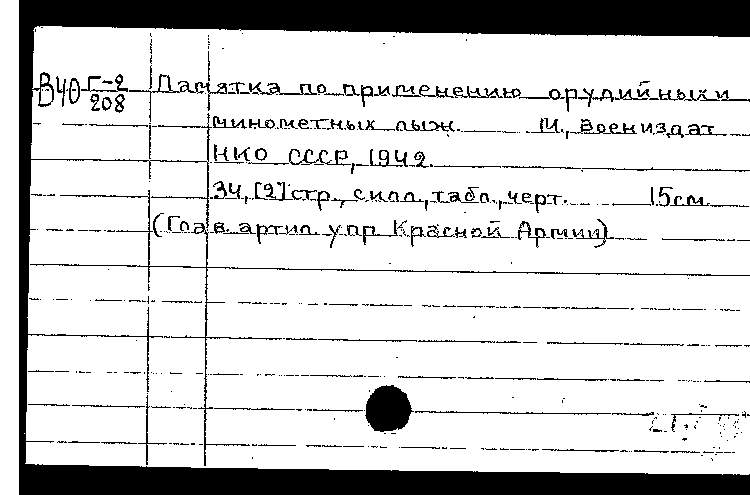 В40 Г-2/208 Памятка по применению орудийных и
минометных лыж. М., Воениздат
НКО СССР, 1942.
34, [2] стр., с илл., табл., черт. 15см.
(Глав. артил. упр. Красной Армии)